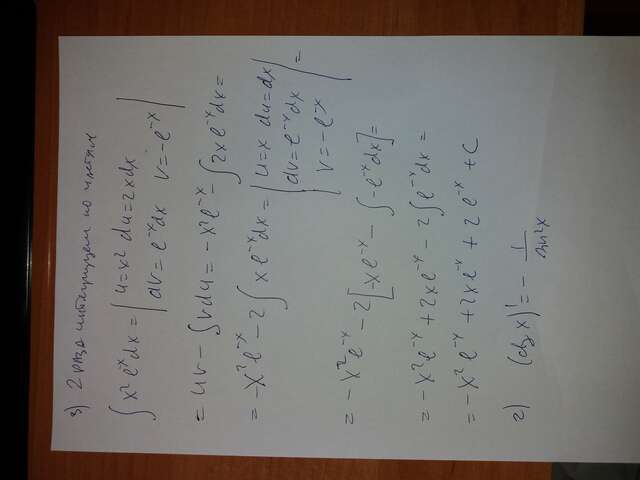 3) 2 раза интегрируем по частям
∫ x² e^-x dx = | u=x² du=2xdx
dv=e^-x dx v=-e^-x |
= uv - ∫vdu = -x²e^-x - ∫2xe^-x dx =
= -x²e^-x - 2∫xe^-x dx = | u=x du=dx
dv=e^-x dx
v=-e^-x | =
= -x²e^-x - 2[-xe^-x - ∫-e^-x dx] =
= -x²e^-x + 2xe^-x - 2∫e^-x dx =
= -x²e^-x + 2xe^-x + 2e^-x + c
2) (ctg x)' = - 1/sin²x